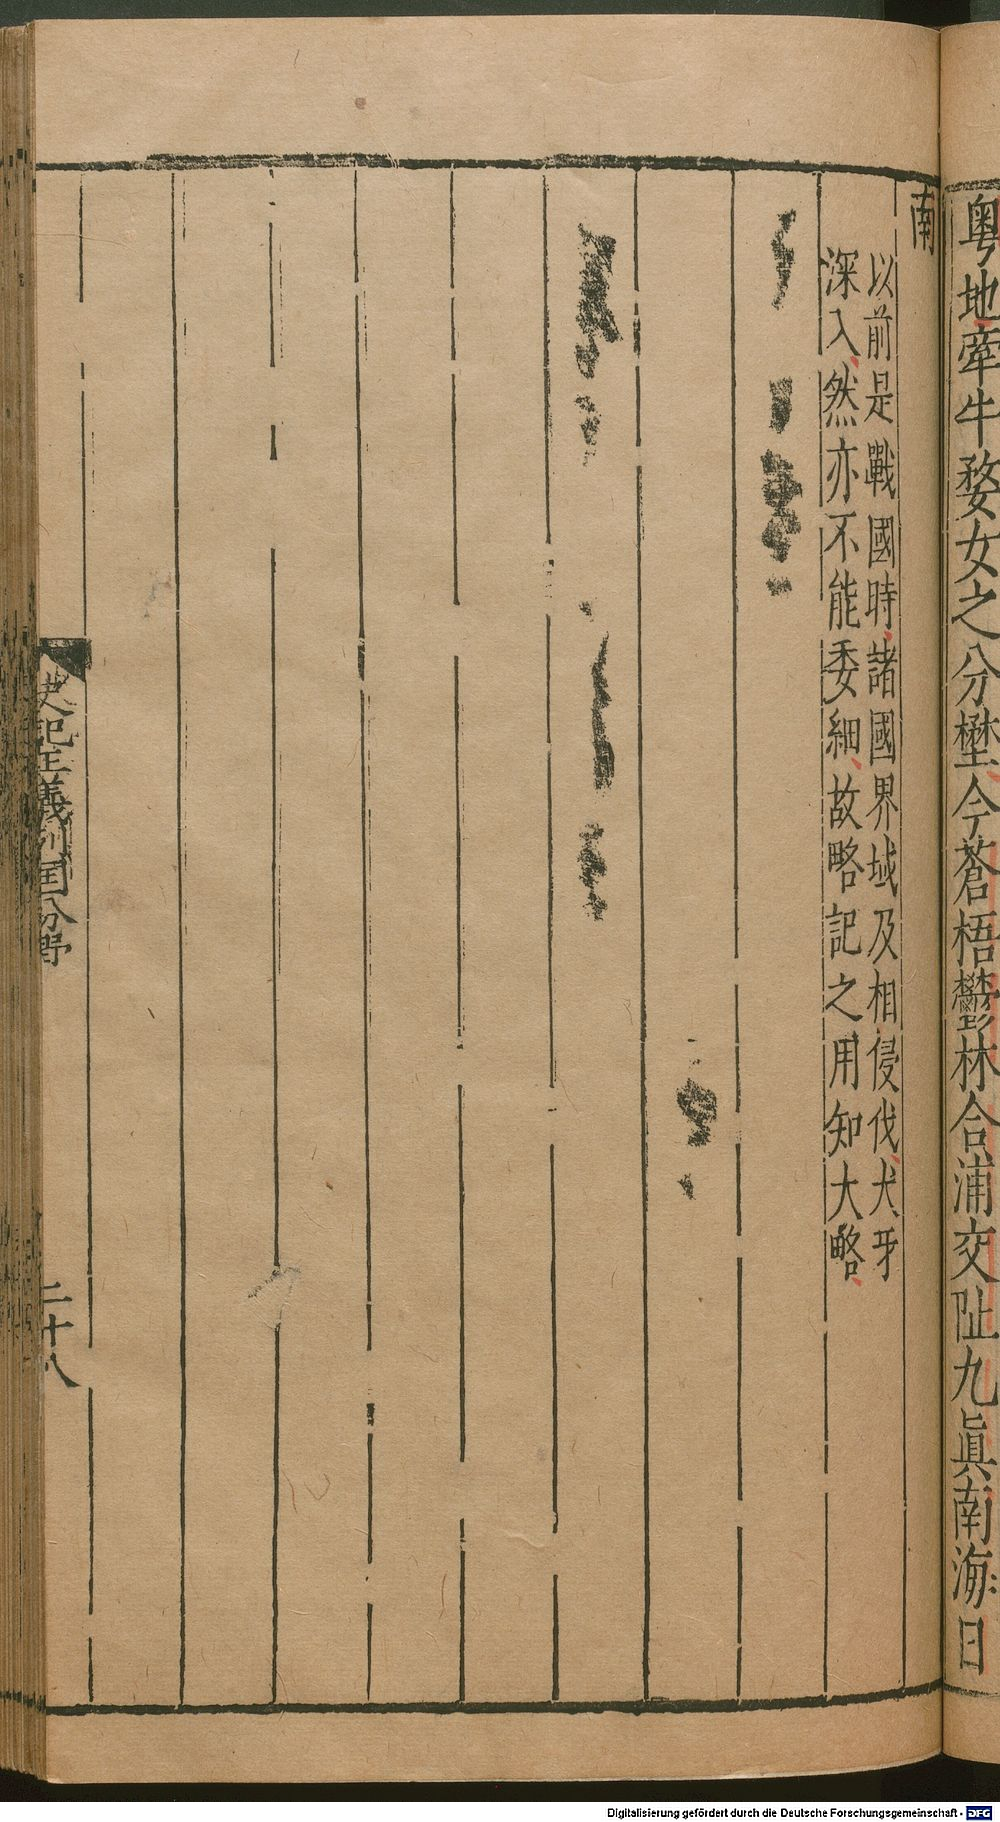 粤地牽牛婺女之分壄今蒼梧鬱林合浦交阯九眞南海日
南
以前是戰國時諸國界域及相侵伐犬牙
深入然亦不能委細故略記之用知大略
史記正義列国分野
二十八
Digitalisierung gefördert durch die Deutsche Forschungsgemeinschaft - DFG